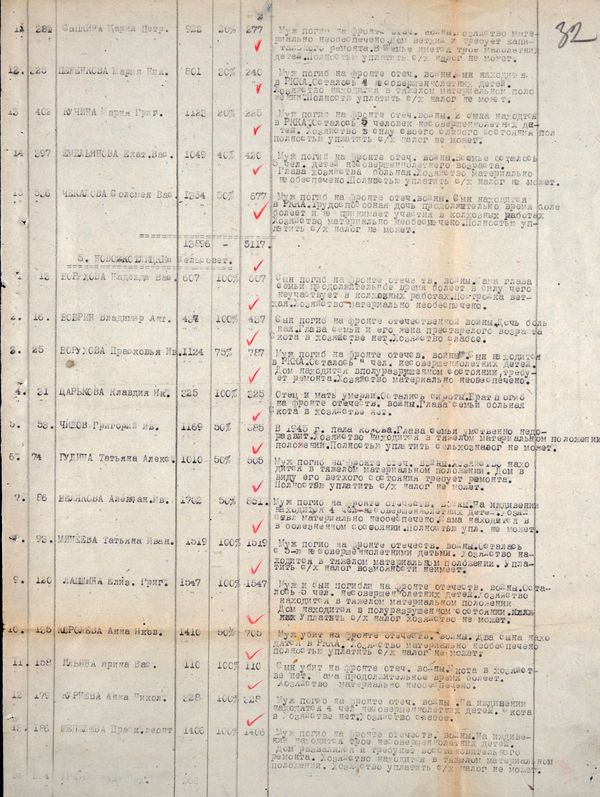 32
11 282 Мария Петр. 922 30% 277 Муж погиб на фронте отеч. войны. Хозяйство мате-
риально необеспечено. Дом ветхий и требует капи-
тального ремонта. В семье имеется трое малолетних
детей. Полностью уплатить с/х налог не может.
12. 328 Мария Ник. 801 30% 240 Муж погиб на фронте отеч. войны. Сын находится
в РККА. Осталось 4 несовершеннолетних детей.
Хозяйство находится в тяжелом материальном поло
жении. Полностью уплатить с/х налог не может.
13 402 КУЧИНА Мария Григ. 1123 20% 225 Муж погиб на фронте отеч. войны. 2 сына находятся
в РККА. Осталось 5 человек несовершеннолетних де-
тей. Хозяйство в силу своего слабого состояния пол
полностью уплатить с/х налог не может.
14 397 ЕМЕЛЬЯНОВА Екат. Вас. 1049 40% 420 Муж погиб на фронте отеч. войны. В семье осталось
5 чел. детей несовершеннолетнего возраста.
Глава хозяйства больная. Хозяйство материально
необеспечено. Полностью уплатить с/х налог не может.
15 536 ЧЕКАЛОВА Соломея Вас. 1354 50% 677 Муж погиб на фронте отеч. войны. Сын находится
в РККА. Трудоспособная дочь продолжительно время боле
болеет и не принимает участия в колхозных работах
Хозяйство материально необеспечено. Полностью уп-
латить с/х не может.
13896 - 5117.
5. сельсовет.
1. 13 БОРУХОВА Надежда Вас. 607 100% 607 Сын погиб на фронте отечеств. войны. Сама глава
семьи продолжительное время болеет в силу чего
неучаствует в колхозных работах. Постройка вет-
хая. Хозяйство материально необеспечено.
2. 16. БОБРИН Владимир Ант. 437 100% 437 Сын погиб на фронте отечественной войны. Дочь боль
ная. Глава семьи и его жена престарелого возраста
Скота в хозяйстве нет. Хозяйство слабое.
3. 25 БОРУХОВА Прасковья Ив. 1124 75% 787 Муж погиб на фронте отечеств. войны. Сын находится
в РККА. Осталось чел. несовершеннолетних детей.
Дом находится вполуразрушенном состоянии, требу-
ет ремонта. Хозяйство материально необеспечено.
4. 31 ЦАРЬКОВА Клавдия Ик. 325 100% 325 Отец и мать умерли. Остались сироты. Брат погиб
на фронте отечеств. войны. Глава семьи больная
Скота в хозяйстве нет.
5. 53. ЧИЖОВ Григорий Ив. 1169 50% 585 В 1945 г. пала корова. Глава семьи умственно недо-
развит. Хозяйство находится в тяжелом материальном положении
положении. Полностью уплатить сельхозналог не может.
6. 74 ГУДИНА Татьяна Алекс. 1010 50% 505 Муж погиб на фронте отеч. войны. Хозяйство нахо
дится в тяжелом материальном положении. Дом в
виду его ветхого состояния требует ремонта.
Полностью уплатить с/х налог не может.
7. 86 Ив. 1702 50% 851. Муж погиб на фронте отечеств. войны. На иждивении
находится 4 чел несовершеннолетних детей. Хозяй-
ство материально необеспечено. Сама находится в
в болезненном состоянии. Полностью упл. не может.
8. 93. МИНЕЕВА Татьяна Иван. 1519 100% 1519 Муж погиб на фронте отечеств. войны. Осталась
с 5-ю несовершеннолетними детьми. Хозяйство на-
ходится в тяжелом материальном положении. Упла-
тить с/х налог возможности неимеет.
9. 120 Елиз. Григ. 1547 100% 1547 Муж и сын погибли на фронте отечеств. войны. Оста-
лось 5 чел. несовершеннолетних детей. Хозяйство
находится в тяжелом материальном положении
Дом находится в полуразрушенном состоянии.
Уплатить с/х налог Хозяйство не может.
10. 135 КОРОЛЕВА Анна Яков. 1410 50% 705 Муж убит на фронте отечеств. войны. Два сына нахо
дятся в РККА. Хозяйство материально необеспечено
полностью уплатить с/х налог не может.
11. 158 ИЛЬИНА Арина Вас. 110 100% 110 Сын убит на фронте отеч. войны. Скота в хозяйст-
ве нет. Сама продолжительное время болеет.
Хозяйство материально необеспечено.
12 179 Анна Никол. 328 100% 328 Муж погиб на фронте отеч. войны. На иждивении
находятся 4 чел несовершеннолетних детей. Скота
в хозяйстве нет. Хозяйство слабое.
13. 186 Праск. Леонт 1406 100% 1406 Муж погиб на фронте отечеств. войны. На иждиве-
нии находится трое несовершеннолетних детей.
Дом развалился и требует восстановительного
ремонта. Хозяйство находится в тяжелом материальном
положении. Хозяйство уплатить с/х налог не может.